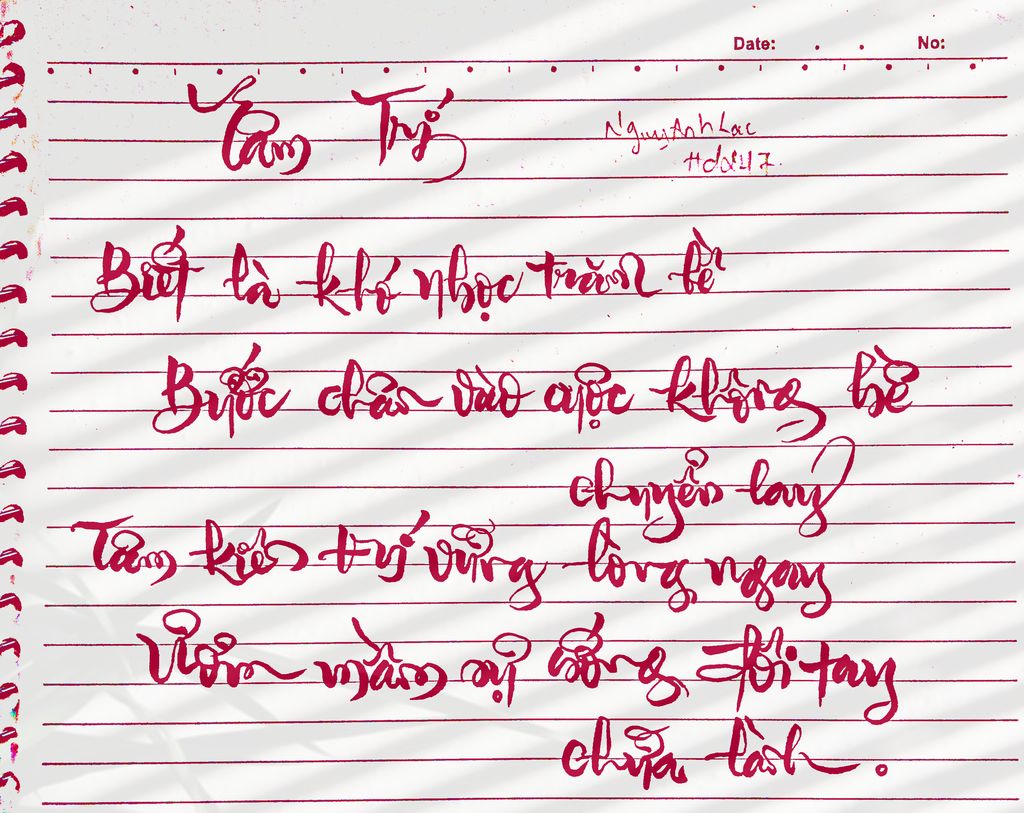 Date: . . No:
Tâm Trí
NguyAnhLac
Biết là khó nhọc trăm bề
Bước chân vào cuộc không hề
chuyển lay
Tâm kiên trí vững lòng ngay
Ươm mầm sự sống đôi tay
chữa lành.